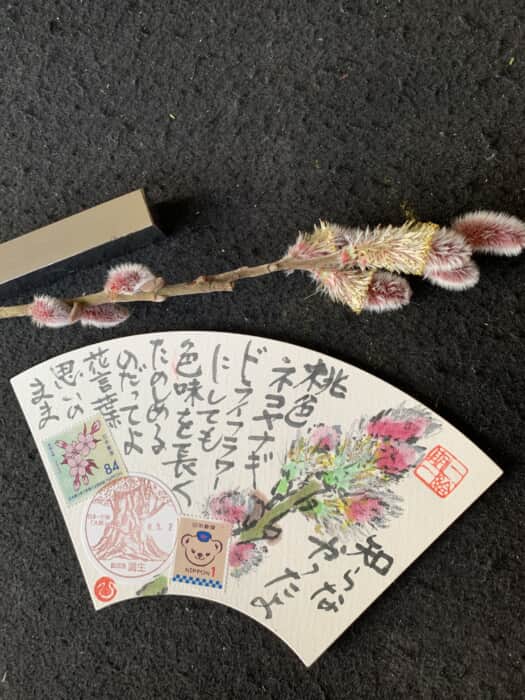 桃色
ネコヤナギ
ドライフラワー
にしても
色味を長く
たのしめる
のだってよ
花言葉
思いの
まま
知らな
かったよ
84
日本郵便
NIPPON 1
誕生